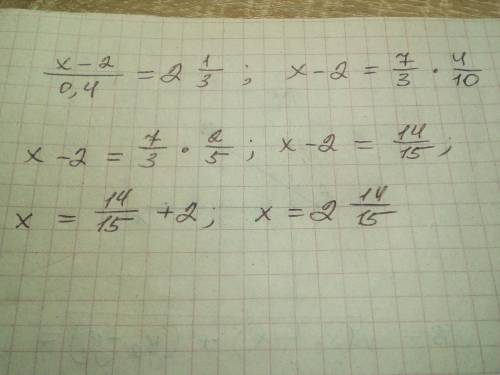 x-2/0,4 = 2 1/3; x-2 = 7/3 · 4/10
x-2 = 7/3 · 2/5; x-2 = 14/15;
x = 14/15 +2; x = 2 14/15